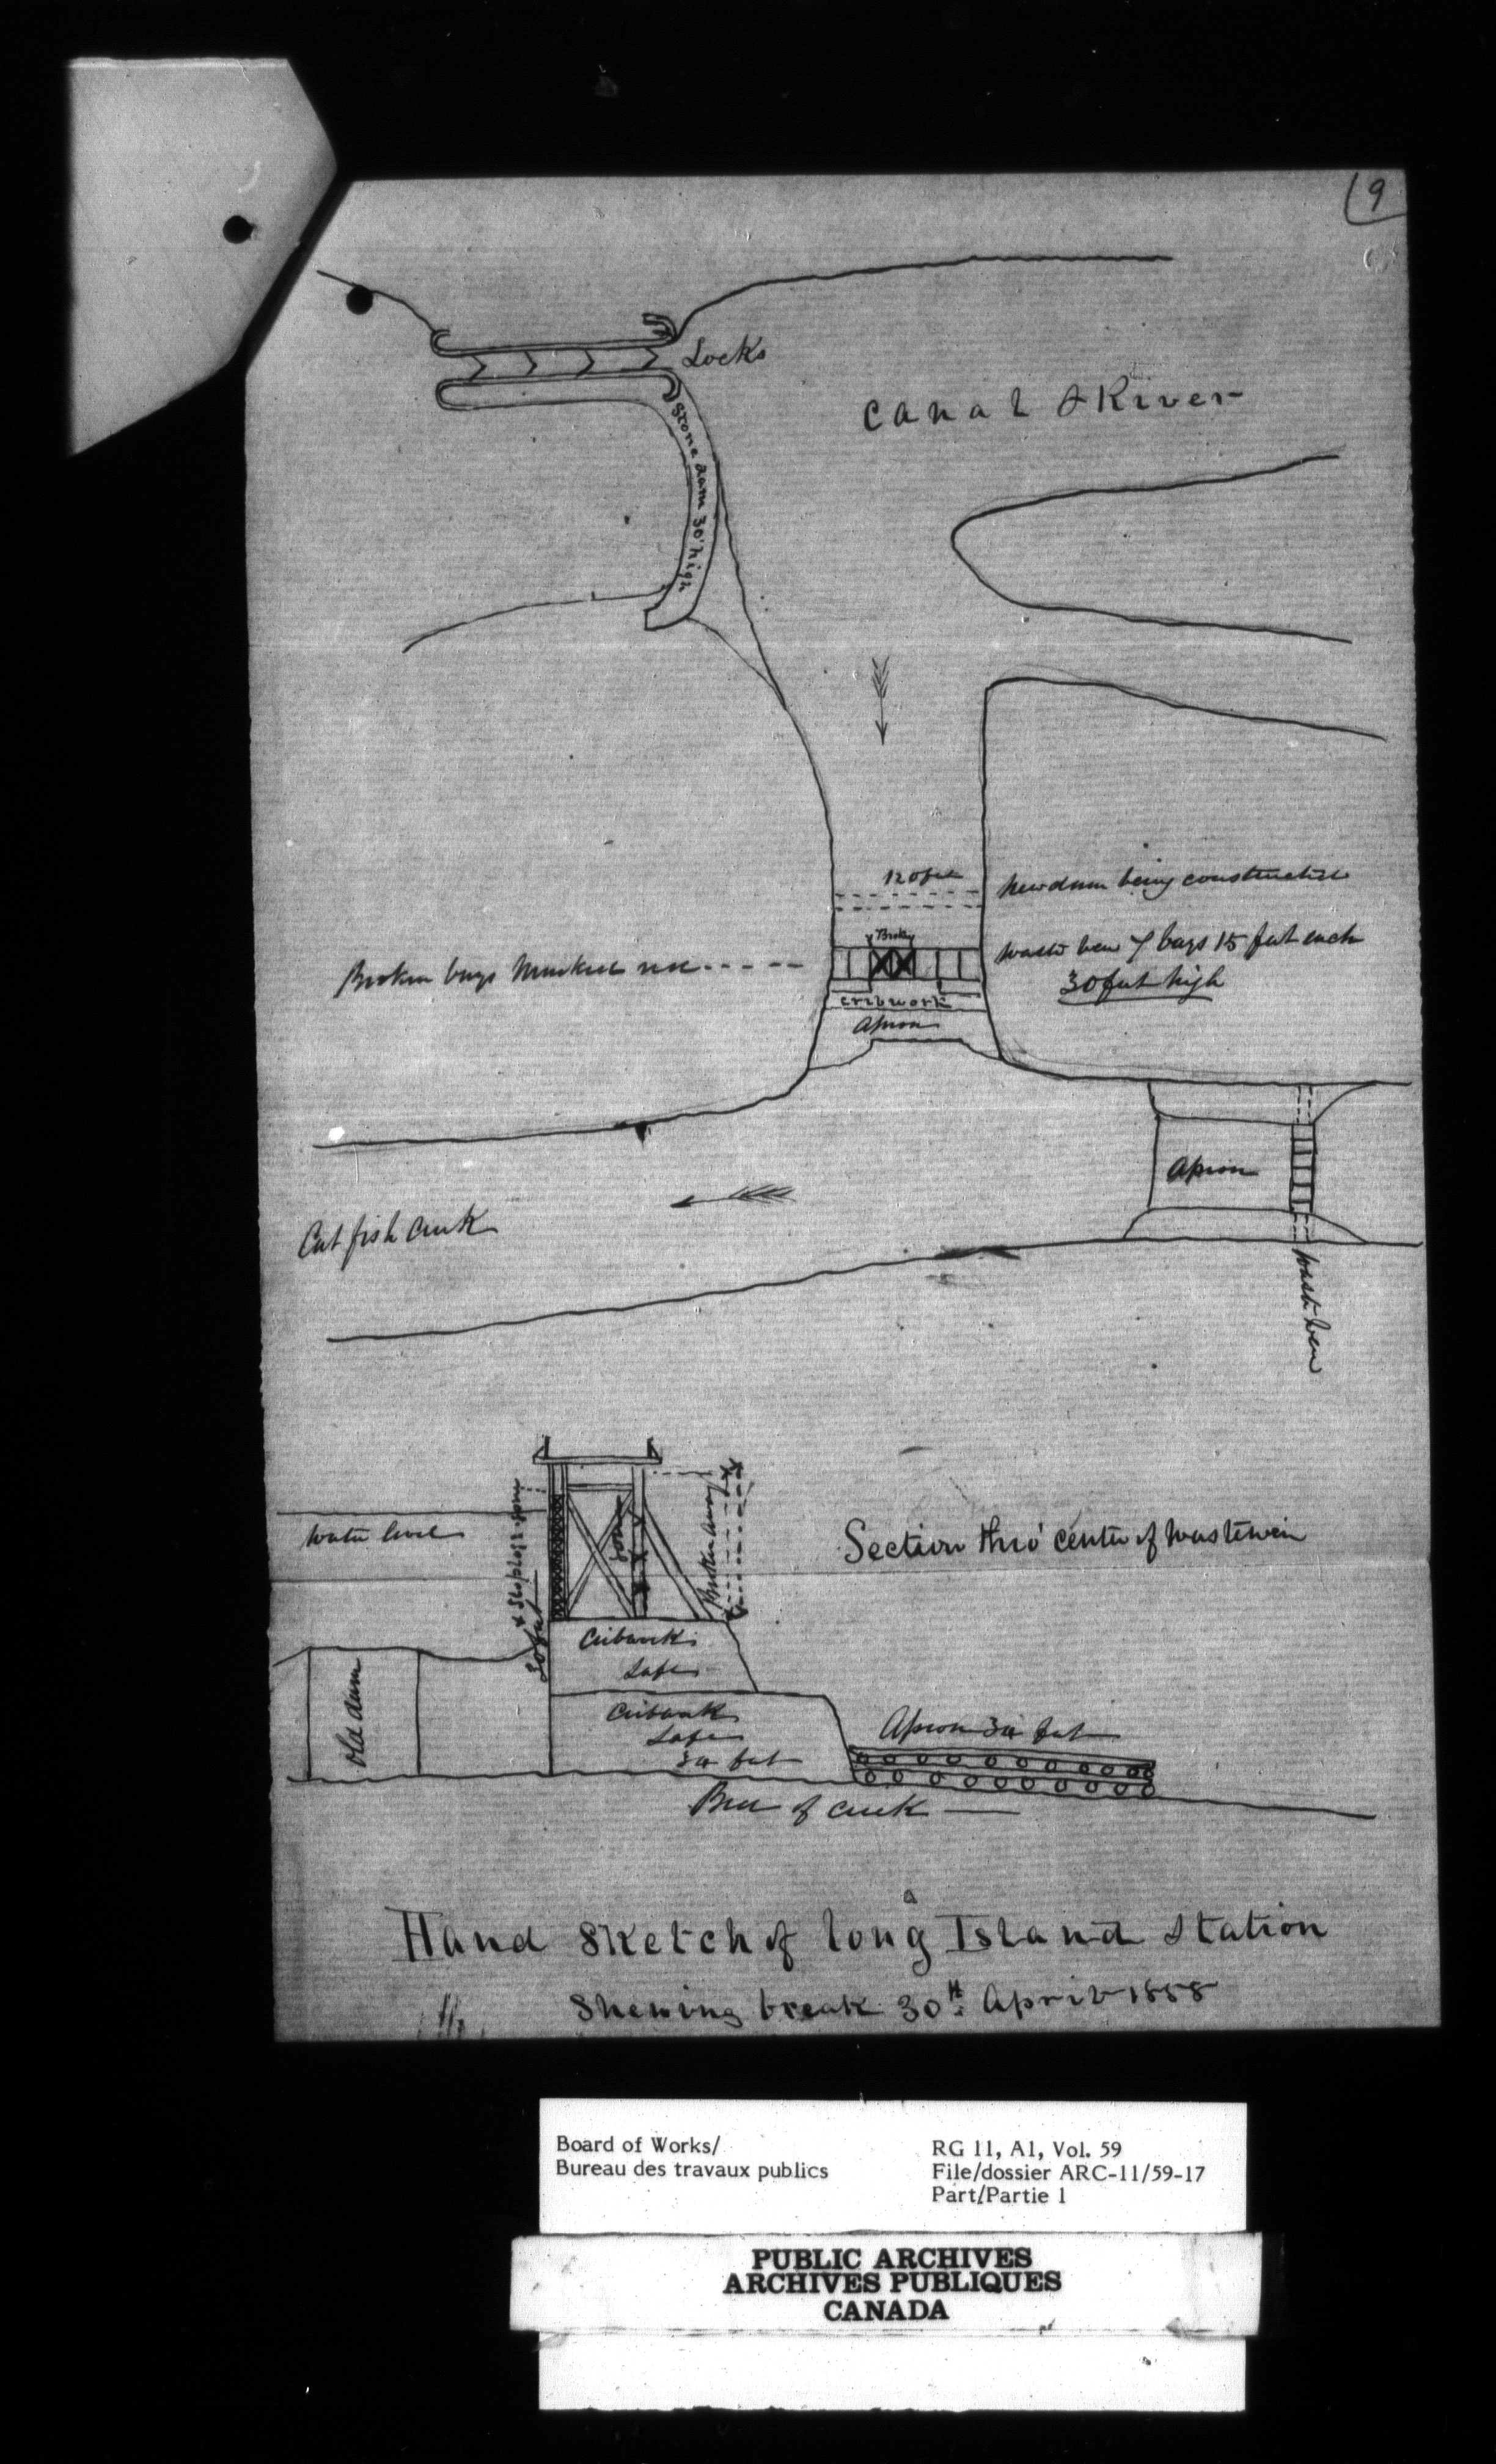 9
Locks
Canal & River
Stone dam 30' high
120 feet
New dam being constructed
Broke
Waste weir 7 bays 15 feet each
30 feet high
Broken bays marked
cribwork
Apron
Apron
Catfish Creek
Waste weir
Water level
Stoplogs gone
30 feet
gone
Broken away
Section thro' center of wasteweir
Cribwork
Safe
Old dam
Cribwork
Safe
30 feet
Apron 30 feet
Bed of creek
Hand Sketch of Long Island Station
Shewing break 30th April 1858
Board of Works/
Bureau des travaux publics
RG 11, A1, Vol. 59
File/dossier ARC-11/59-17
Part/Partie 1
PUBLIC ARCHIVES
ARCHIVES PUBLIQUES
CANADA